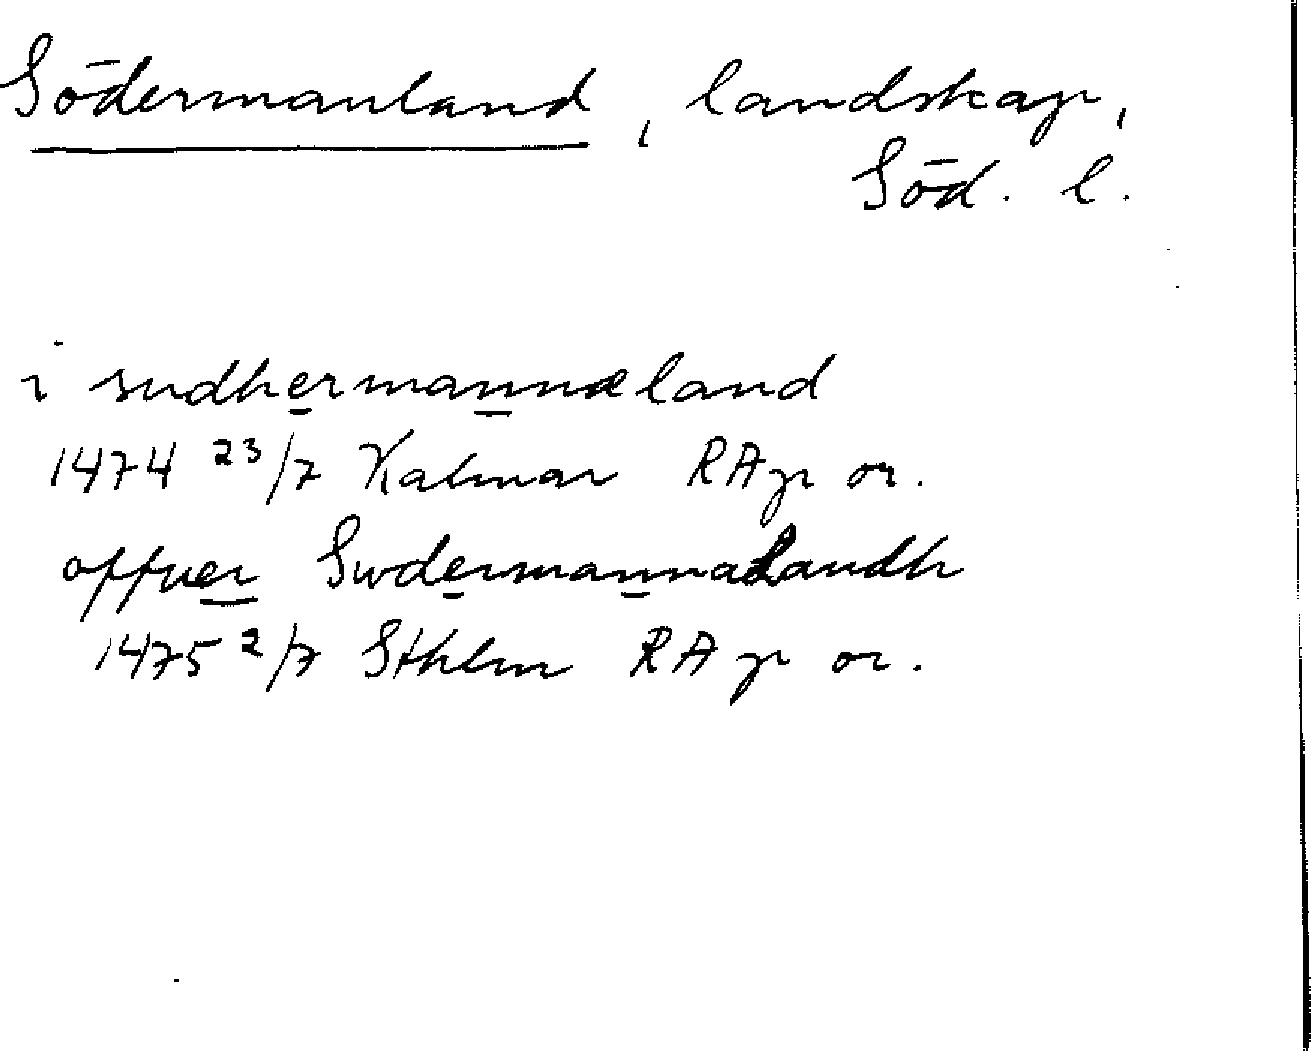 Södermanland, landskap,
Söd. l.
i sudhermannæland
1474 23/7 Kalmar RAp or.
offuer Swdermannalandh
1475 2/7 Sthlm RAp or.